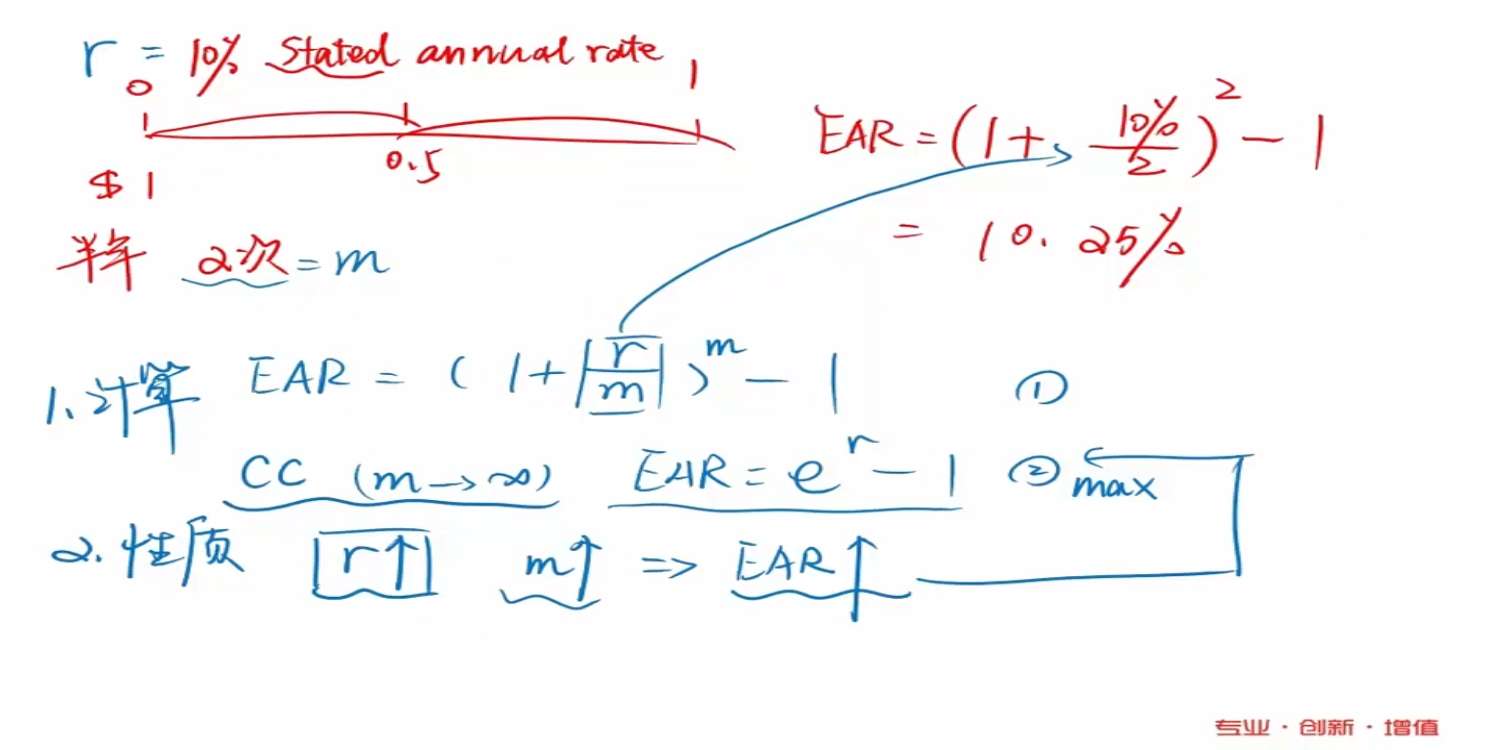 r = 10% Stated annual rate
0 1
0.5
$1
EAR = (1 + 10%/2)^2 - 1
= 10.25%
半年 2次 = m
1.计算 EAR = (1 + r/m)^m - 1 ①
CC (m→∞) EAR = e^r - 1 ② max
2.性质 r↑ m↑ => EAR↑
专业·创新·增值